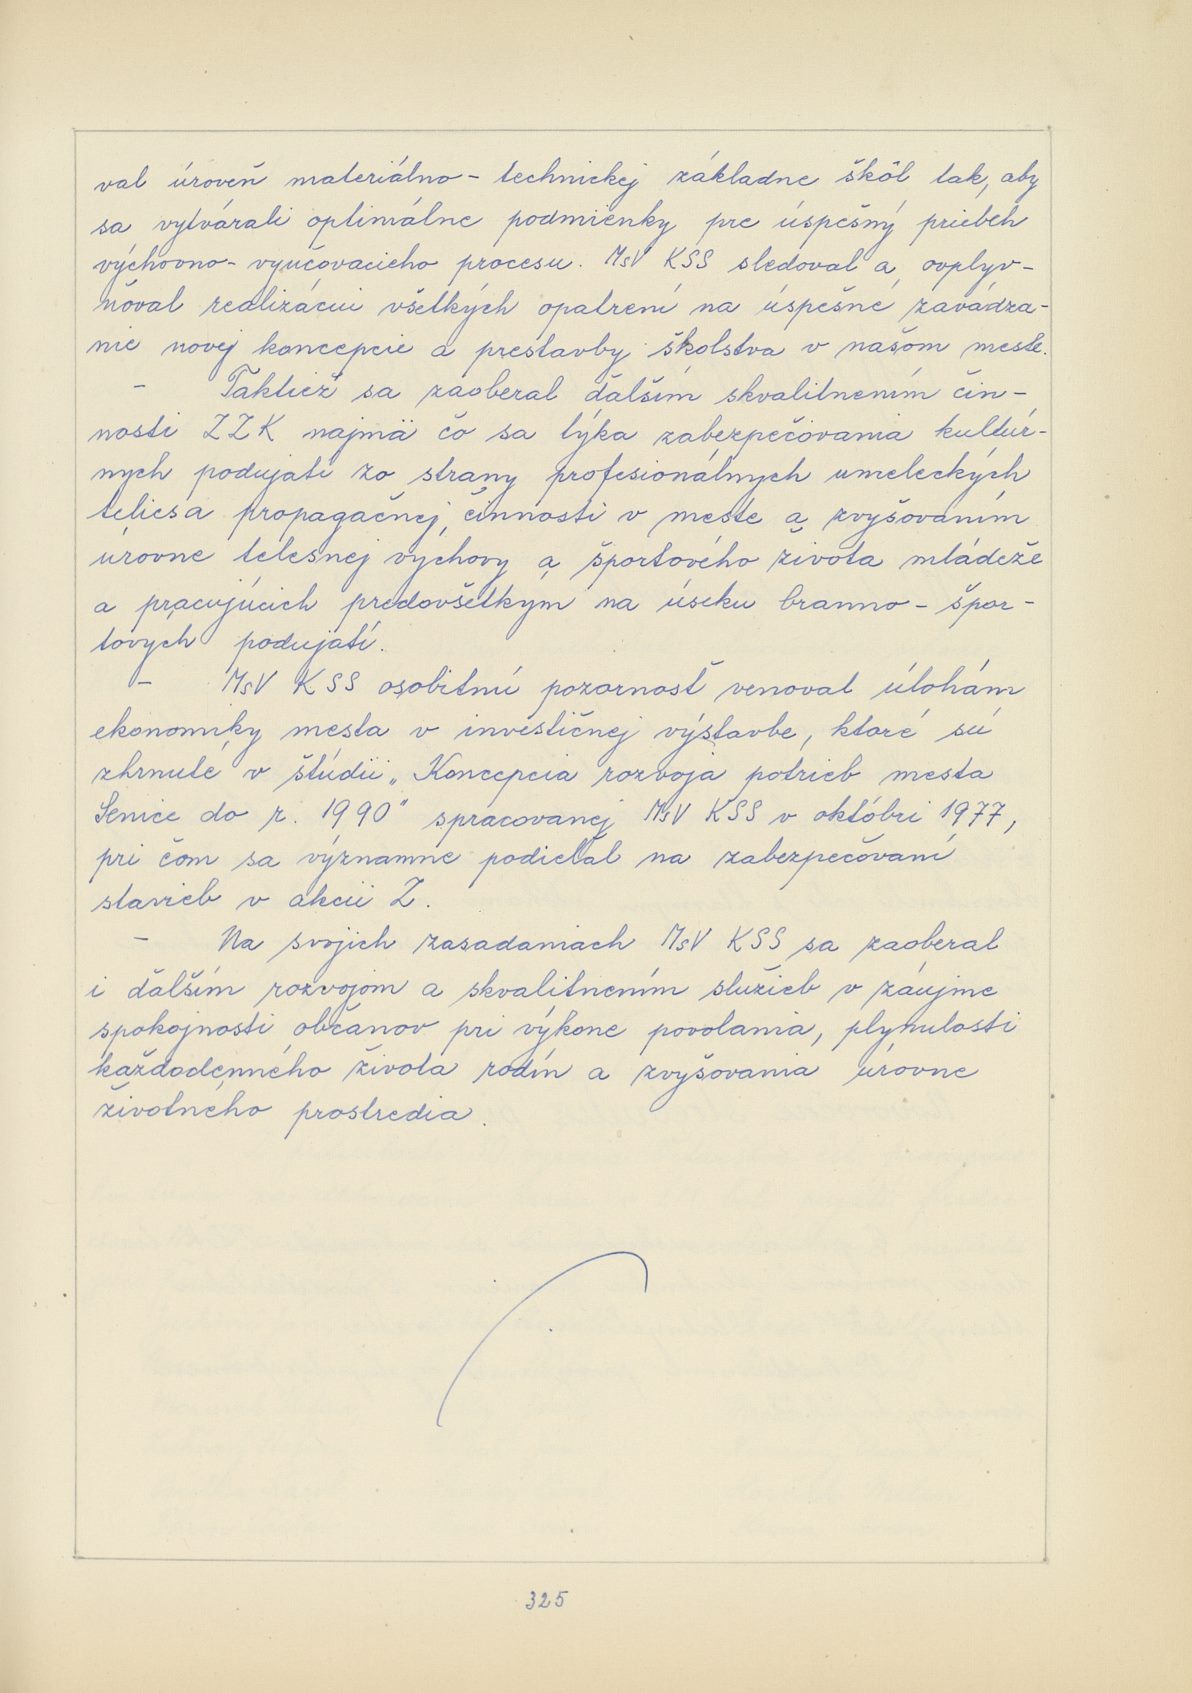 val úroveň materiálno - technickej základne škôl tak, aby
sa vytvárali optimálne podmienky pre úspešný priebeh
výchovno - vyučovacieho procesu. MsV KSS sledoval a ovplyv-
ňoval realizáciu všetkých opatrení na úspešné zavádza-
nie novej koncepcie a prestavby školstva v našom meste.
- Taktiež sa zaoberal ďalším skvalitnením čin-
nosti ZZK najmä čo sa týka zabezpečovania kultúr-
nych podujatí zo strany profesionálnych umeleckých
telies a propagačnej činnosti v meste a zvyšovaním
úrovne telesnej výchovy a športového života mládeže
a pracujúcich predovšetkým na úseku branno - špor-
tových podujatí.
- MsV KSS osobitnú pozornosť venoval úlohám
ekonomiky mesta v investičnej výstavbe, ktoré sú
zhrnuté v štúdii „Koncepcia rozvoja potrieb mesta
Senice do r. 1990" spracovanej MsV KSS v októbri 1977,
pri čom sa významne podieľal na zabezpečovaní
stavieb v akcii Z.
- Na svojich zasadaniach MsV KSS sa zaoberal
i ďalším rozvojom a skvalitnením služieb v záujme
spokojnosti občanov pri výkone povolania, plynulosti
každodenného života rodín a zvyšovania úrovne
životného prostredia.
325